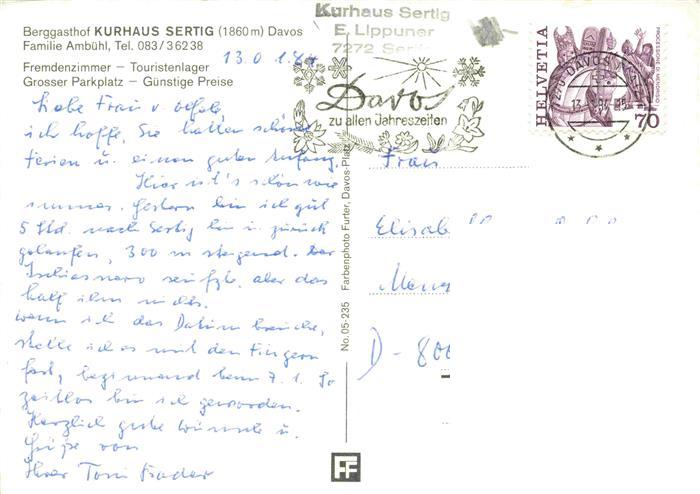 Berggasthof KURHAUS SERTIG (1860 m) Davos
Familie Ambühl, Tel. 083/36238
Fremdenzimmer – Touristenlager
Grosser Parkplatz – Günstige Preise
13.01.84
Liebe Frau v.
ich hoffe, Sie hatten schöne
Ferien u. einen guten Anfang.
Hier ist's schön wie
immer. Gestern bin ich gut
5 Std. nach Sertig hin u. zurück
gelaufen, 300 m steigend. Der
Ischiasnerv seufzte, aber das
half ihm nichts.
Wenn ich das Datum brauche,
stelle ich es mit den Fingern
fest, beginnend beim 7.1. So
zeitlos bin ich geworden.
Herzlich gute Wünsche u.
Grüße von
Ihrer Toni
No. 05-235 Farbenphoto Furter, Davos-Platz
FF
Kurhaus Sertig
E. Lippuner
7272 Serti
Davos
zu allen Jahreszeiten
HELVETIA
70
Frau
Elisab
D-800